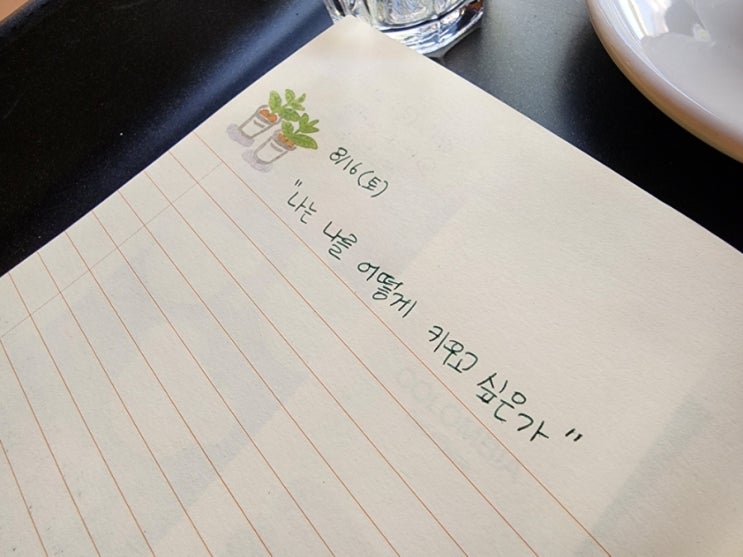 8/16(토)
"나는 나를 어떻게 키우고 싶은가"
COLOMBIA